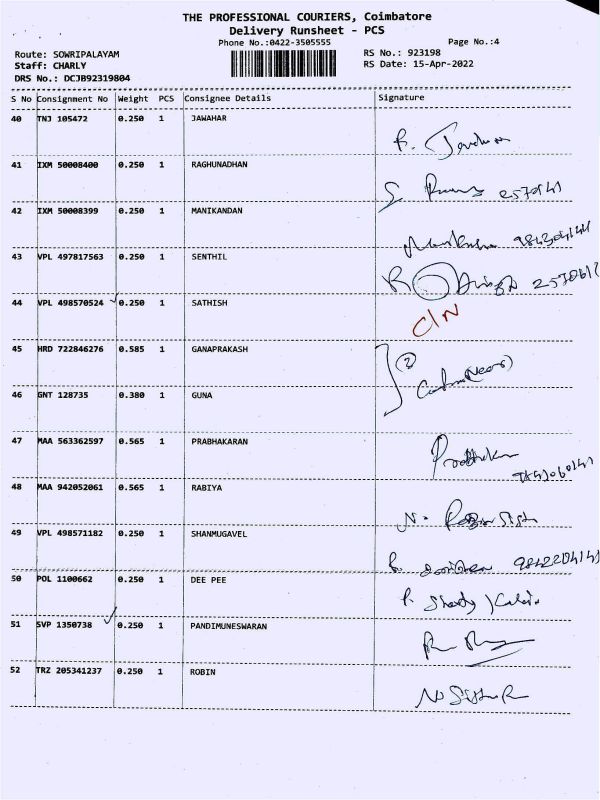 THE PROFESSIONAL COURIERS, Coimbatore
Delivery Runsheet - PCS
Phone No.:0422-3505555
Page No.:4
Route: SOWRIPALAYAM
RS No.: 923198
Staff: CHARLY
RS Date: 15-Apr-2022
DRS No.: DCJB92319804
S No Consignment No Weight PCS Consignee Details Signature
40 TNJ 105472 0.250 1 JAWAHAR
41 IXM 50008400 0.250 1 RAGHUNADHAN
42 IXM 50008399 0.250 1 MANIKANDAN
43 VPL 497817563 0.250 1 SENTHIL
44 VPL 498570524 0.250 1 SATHISH C/N
45 HRD 722846276 0.585 1 GANAPRAKASH
46 GNT 128735 0.380 1 GUNA
47 MAA 563362597 0.565 1 PRABHAKARAN
48 MAA 942052061 0.565 1 RABIYA
49 VPL 498571182 0.250 1 SHANMUGAVEL
50 POL 1100662 0.250 1 DEE PEE
51 SVP 1350738 0.250 1 PANDIMUNESWARAN
52 TRZ 205341237 0.250 1 ROBIN